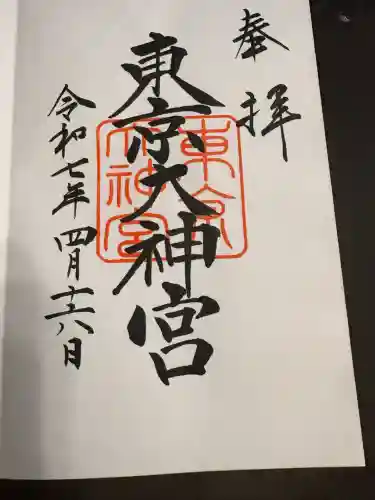 奉拝
東京大神宮
東京
大神宮
令和七年四月十六日